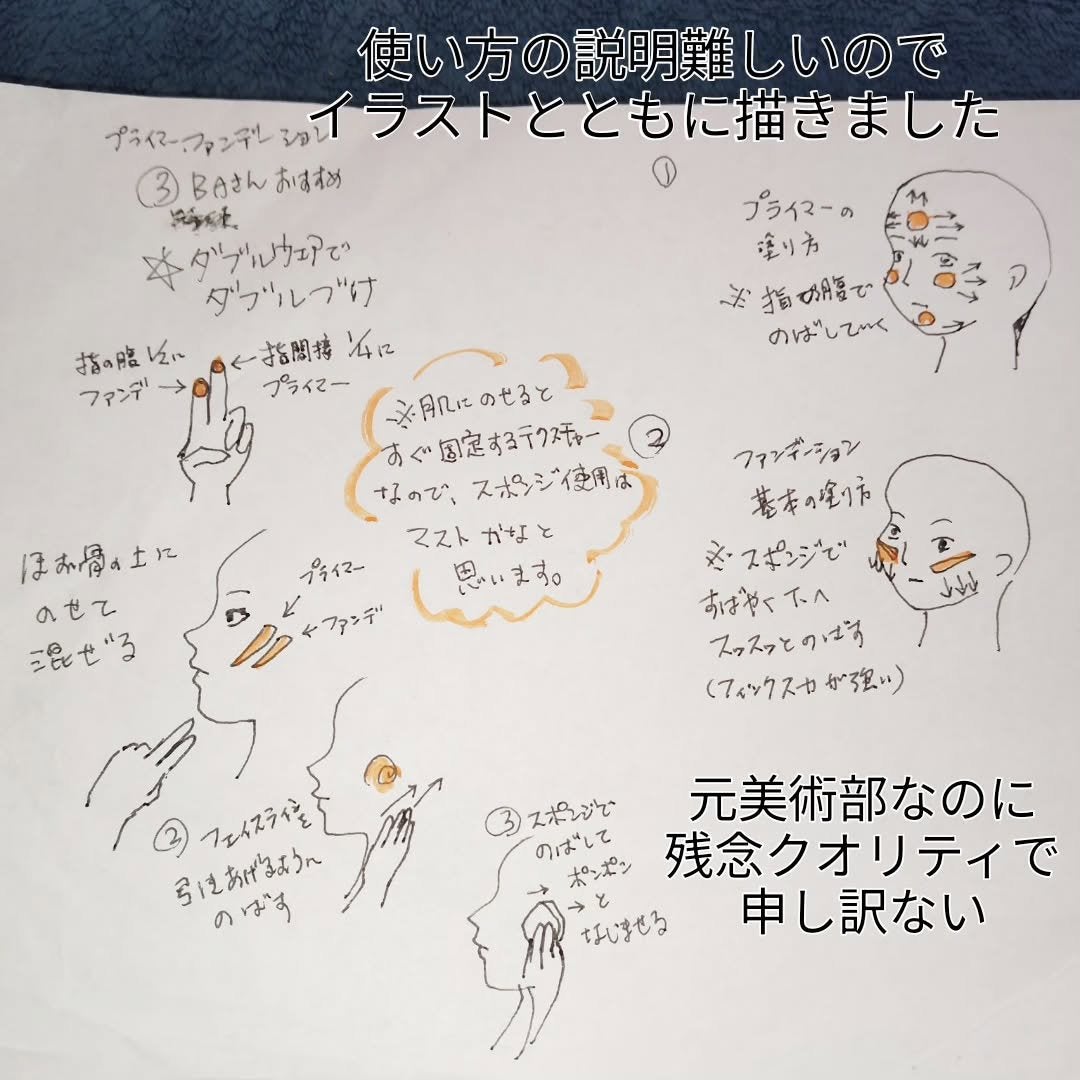 使い方の説明難しいので
イラストとともに描きました
プライマー、ファンデーション
③ BAさんおすすめ
☆ダブルウェアで
ダブルづけ
指の腹 1/2に
ファンデ→
←指関接 1/4に
プライマー
ほお骨の上に
のせて
混ぜる
プライマー
←ファンデ
② フェイスラインを
引きあげるように
のばす
③ スポンジで
のばして
ポンポン
と
なじませる
※肌にのせると
すぐ固定するテクスチャー
なので、スポンジ使用は
マストかなと
思います。
①
プライマーの
塗り方
※指の腹で
のばしていく
②
ファンデーション
基本の塗り方
※スポンジで
すばやく下へ
スッスッとのばす
(フィックス力が強い)
元美術部なのに
残念クオリティで
申し訳ない